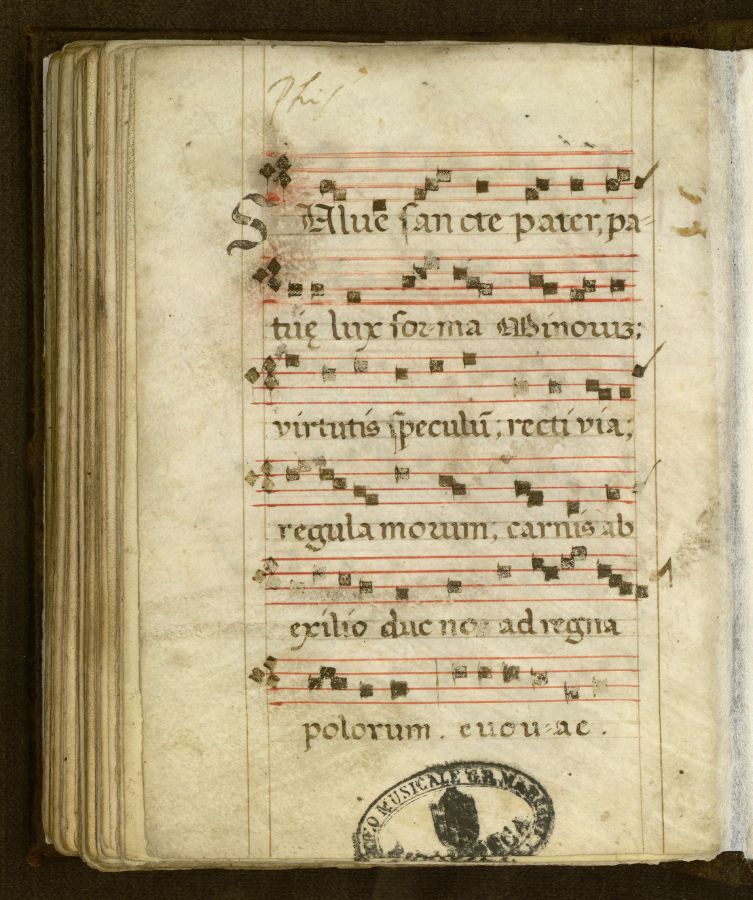 Phi
SAlue sancte pater, pa-
trię lux forma Minorum;
virtutis speculũ; recti via;
regula morum; carnis ab
exilio duc nos ad regna
polorum. euouae.
MUSICALE G.B. MARTINI